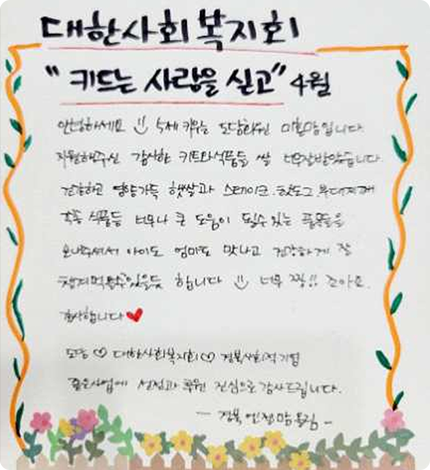 대한사회복지회
"키트는 사랑을 싣고" 4월
안녕하세요 5세 키우는 도담하윤 미혼맘입니다.
지원해주신 감사한 키트와식품들 쌀 너무잘받았습니다.
건강하고 영양가득 햇살과 스테이크. 핫도그. 부대찌개
각종 식품들 너무나 큰 도움이 될수있는 물품들을
보내주셔서 아이도 엄마도 맛나고 건강하게 잘
챙겨먹을수있을듯 합니다 너무 짱!! 조아요.
감사합니다
모두 대한사회복지회 경북사회적기업
좋은사업에 선정과 후원 진심으로 감사드립니다.
- 경북 맘 드림 -